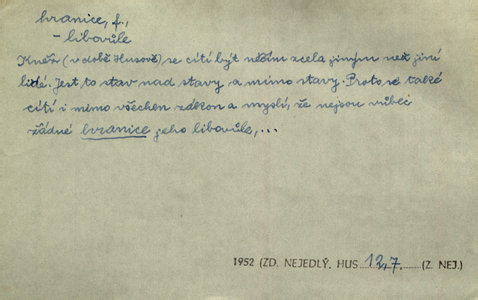 hranice, f.,
– libovůle
Kněz (v době Husově) se cítí být něčím zcela jiným než jiní
lidé. Jest to stav nad stavy a mimo stavy. Proto se také
cítí i mimo všechen zákon a myslí, že nejsou vůbec
žádné hranice jeho libovůle, ...
1952 (ZD. NEJEDLÝ, HUS 12,7. (Z. NEJ.)